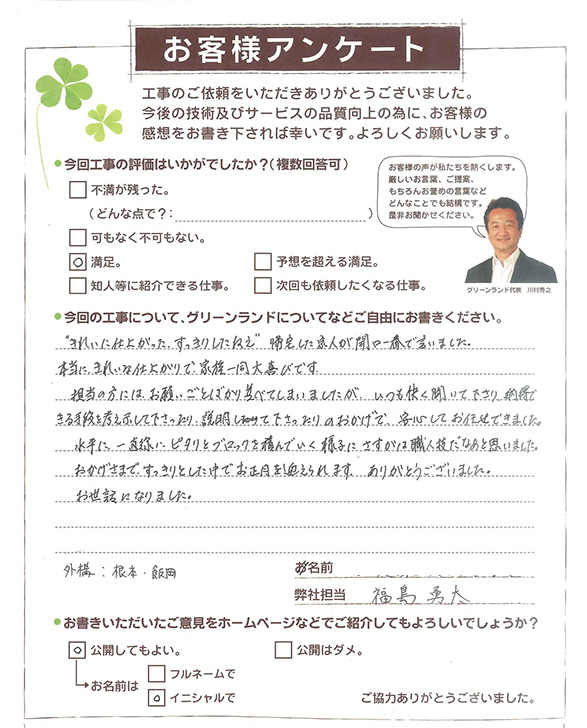 お客様アンケート
工事のご依頼をいただきありがとうございました。
今後の技術及びサービスの品質向上の為に、お客様の
感想をお書き下されば幸いです。よろしくお願いします。
●今回工事の評価はいかがでしたか?(複数回答可)
□不満が残った。
(どんな点で?: )
□可もなく不可もない。
☑満足。
□予想を超える満足。
□知人等に紹介できる仕事。
□次回も依頼したくなる仕事。
お客様の声が私たちを熱くします。
厳しいお言葉、ご提案、
もちろんお誉めの言葉など
どんなことでも結構です。
是非お聞かせください。
グリーンランド代表 川村秀之
●今回の工事について、グリーンランドについてなどご自由にお書きください。
"きれいに仕上がった、すっきりしたねえ" 帰宅した主人が開口一番で言いました。
本当に、きれいな仕上がりで、家族一同大喜びです。
担当の方には、お願いごとばかり並べてしまいましたが、いつも快く聞いて下さり 納得で
きる手段を考え示して下さったり、説明して下さったりのおかげで、安心してお任せできました。
水平に、一直線に、ピタリとブロックを積んでいく様子に さすがは職人技だなあと思いました。
おかげさまで、すっきりとした中でお正月を迎えられます。ありがとうございました。
お世話になりました。
外構:根本・飯岡
お名前
弊社担当 福島 勇太
●お書きいただいたご意見をホームページなどでご紹介してもよろしいでしょうか?
☑公開してもよい。
□公開はダメ。
→お名前は
□フルネームで
☑イニシャルで
ご協力ありがとうございました。